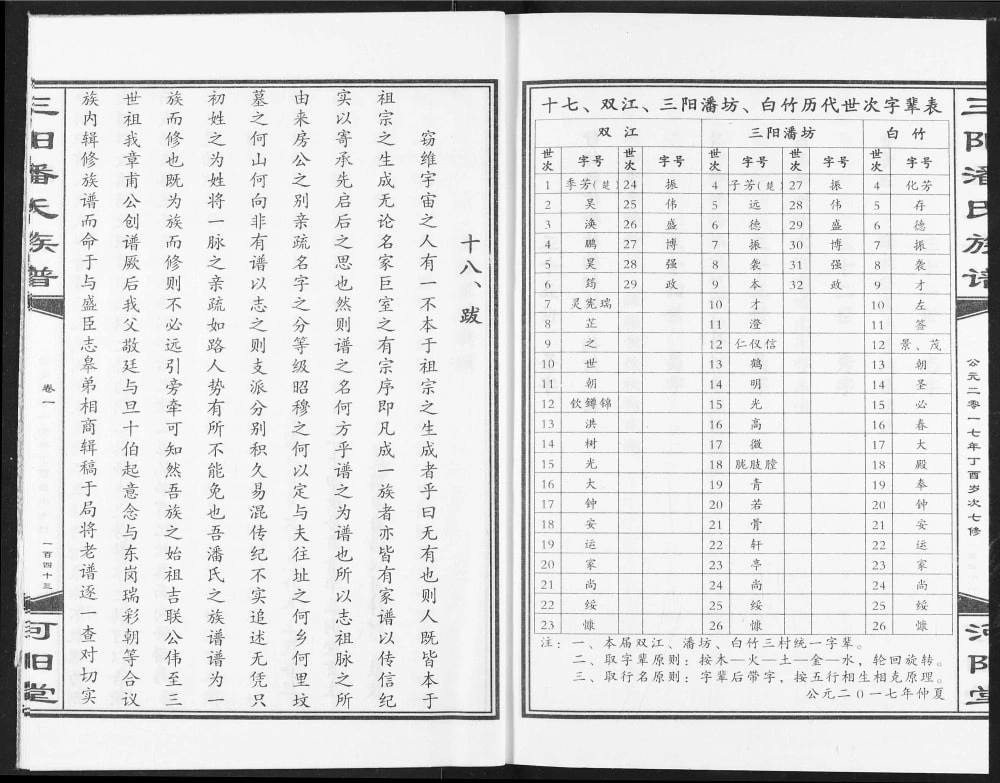 三阳潘氏族谱
公元二零一七年丁酉岁次七修
河阳堂
十七、双江、三阳潘坊、白竹历代世次字辈表
双江 三阳潘坊 白竹
世次 字号 世次 字号 世次 字号 世次 字号 世次 字号
1 季芳(楚) 24 振 4 子芳(楚) 27 振 4 化芳
2 吴 25 伟 5 远 28 伟 5 存
3 涣 26 盛 6 德 29 盛 6 德
4 鹏 27 博 7 振 30 博 7 振
5 昊 28 强 8 袭 31 强 8 袭
6 筠 29 政 9 本 32 政 9 才
7 灵宪瑞 10 才 10 左
8 芷 11 澄 11 答
9 之 12 仁仪信 12 景、茂
10 世 13 鹤 13 朝
11 朝 14 明 14 圣
12 钦鐏锦 15 光 15 必
13 洪 16 高 16 春
14 树 17 微 17 大
15 光 18 胧肢膛 18 殿
16 大 19 青 19 奉
17 钟 20 若 20 钟
18 安 21 胥 21 安
19 运 22 轩 22 运
20 家 23 亭 23 家
21 尚 24 尚 24 尚
22 绥 25 绥 25 绥
23 慷 26 慷 26 慷
注：一、本届双江、潘坊、白竹三村统一字辈。
二、取字辈原则：按木—火—土—金—水，轮回旋转。
三、取行名原则：字辈后带字，按五行相生相克原理。
公元二0一七年仲夏
十八、跋
窃维宇宙之人有一不本于祖宗之生成者乎曰无有也则人既皆本于
祖宗之生成无论名家巨室之有宗序即凡成一族者亦皆有家谱以传信纪
实以寄承先启后之思也然则谱之名何方乎谱之为谱也所以志祖脉之所
由来房公之别亲疏名字之分等级昭穆之何以定与夫往址之何乡何里坟
墓之何山何向非有谱以志之则支派分别积久易混传纪不实追述无凭只
初姓之为姓将一脉之亲疏如路人势有所不能免也吾潘氏之族谱谱为一
族而修也既为族而修则不必远引旁牵可知然吾族之始祖吉联公伟至三
世祖我章甫公创谱厥后我父敬廷与旦十伯起意念与东岗瑞彩朝等合议
族内辑修族谱而命于与盛臣志皋弟相商辑稿于局将老谱逐一查对切实
三阳潘氏族谱
卷一
一百四十三
河阳堂